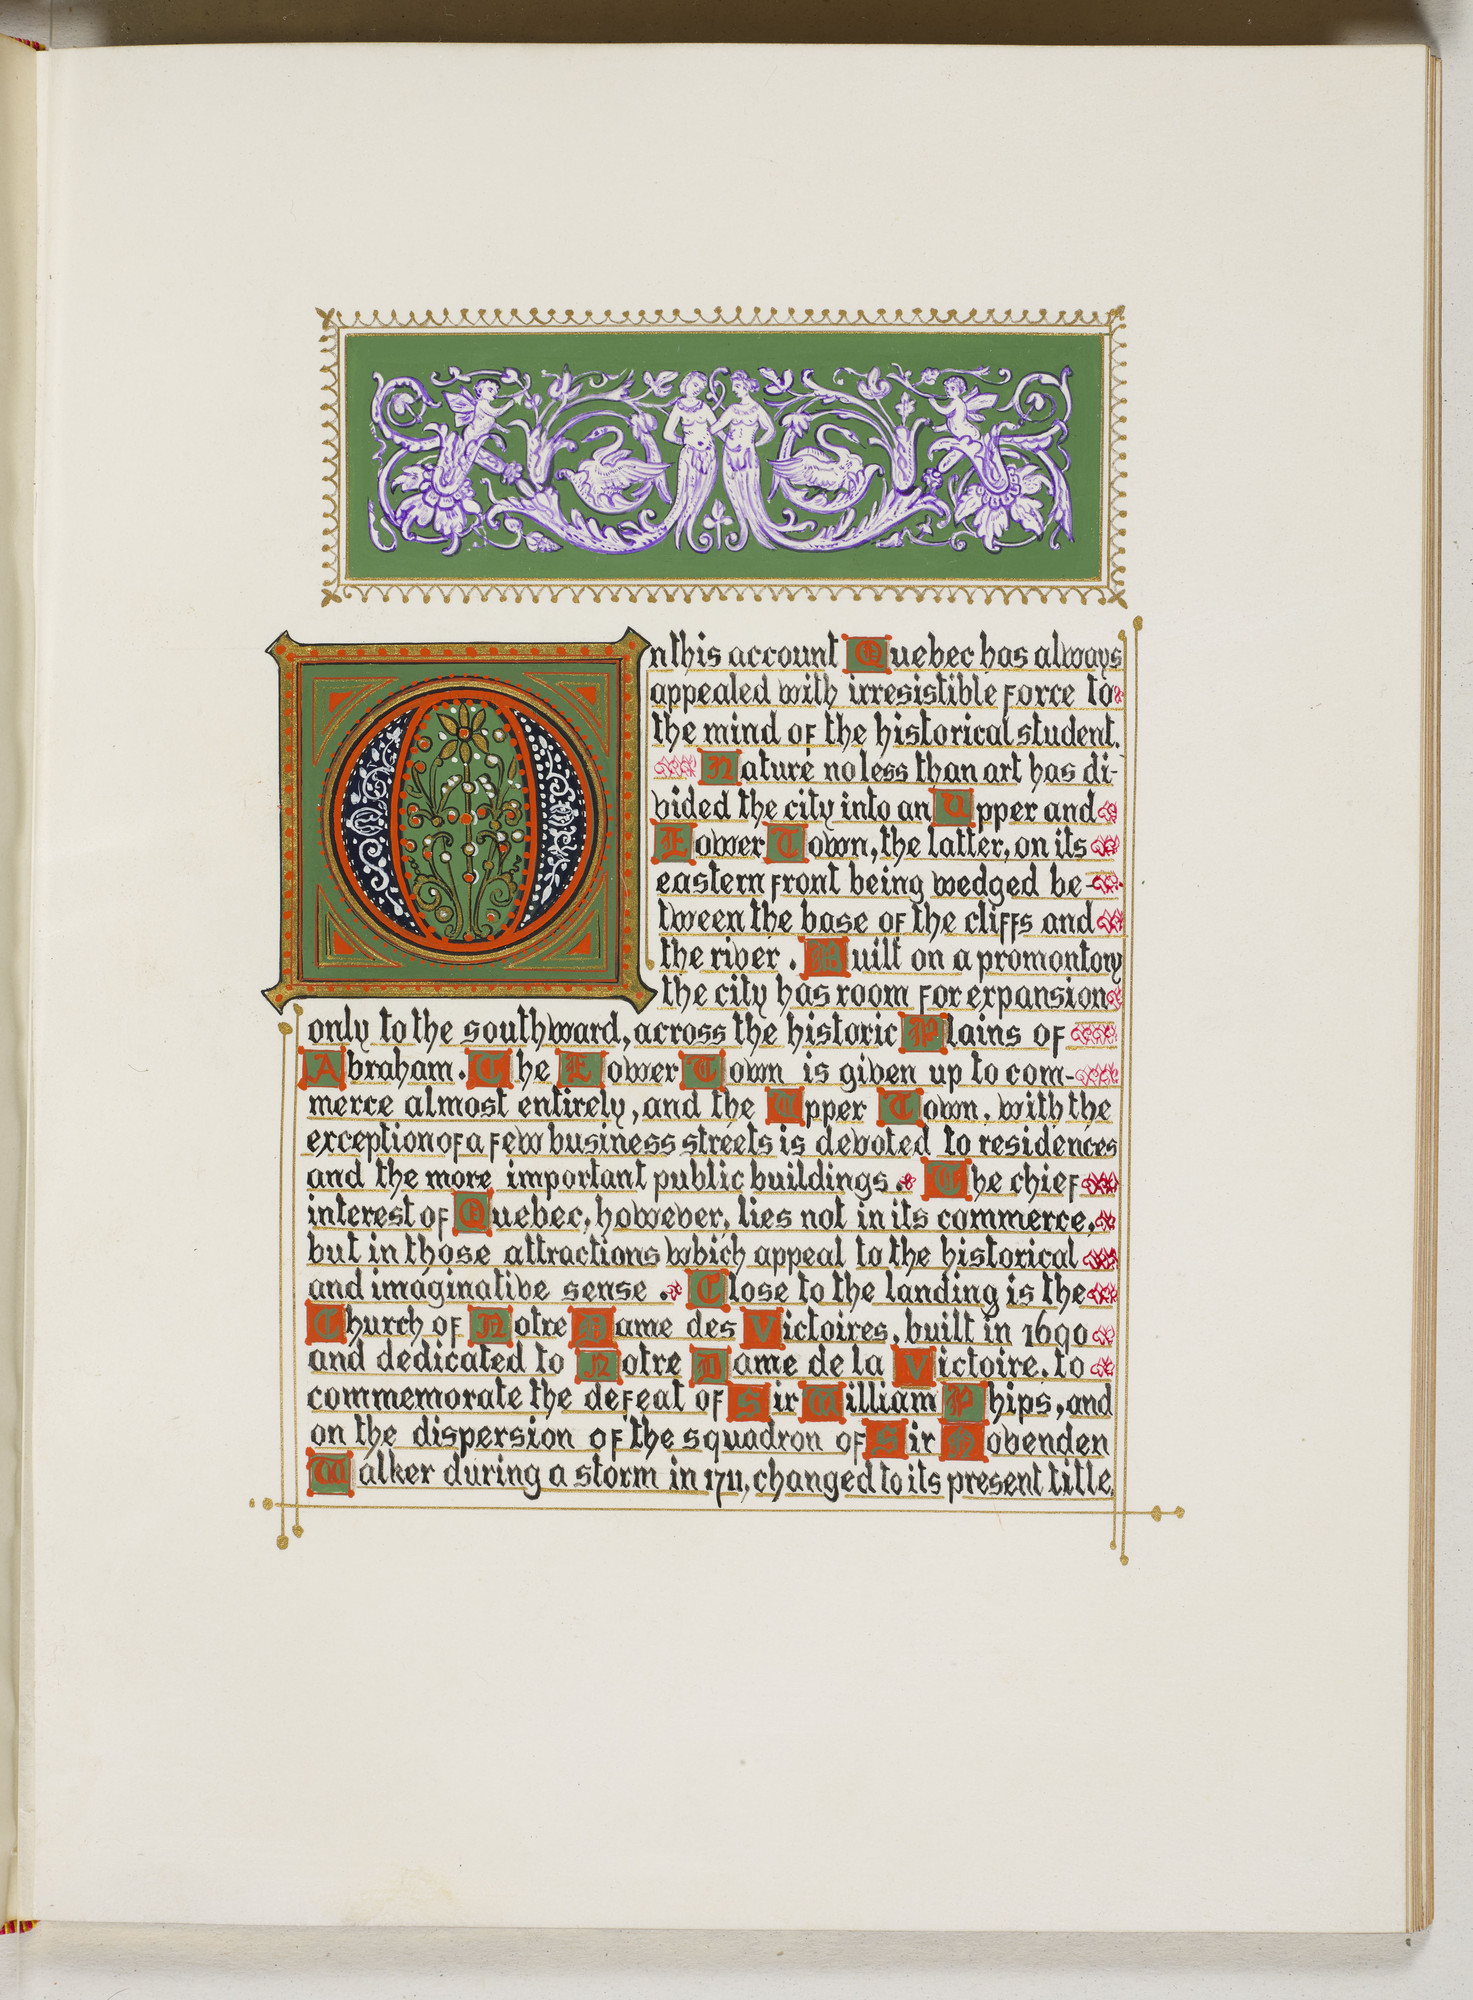 On this account Quebec has always
appealed with irresistible force to
the mind of the historical student.
Nature no less than art has di-
vided the city into an Upper and
Lower Town, the latter, on its
eastern front being wedged be-
tween the base of the cliffs and
the river. Built on a promontory
the city has room for expansion
only to the southward, across the historic Plains of
Abraham. The Lower Town is given up to com-
merce almost entirely, and the Upper Town, with the
exception of a few business streets is devoted to residences
and the more important public buildings. The chief
interest of Quebec, however, lies not in its commerce,
but in those attractions which appeal to the historical
and imaginative sense. Close to the landing is the
Church of Notre Dame des Victoires, built in 1690
and dedicated to Notre Dame de la Victoire, to
commemorate the defeat of Sir William Phips, and
on the dispersion of the squadron of Sir Hovenden
Walker during a storm in 1711, changed to its present title.